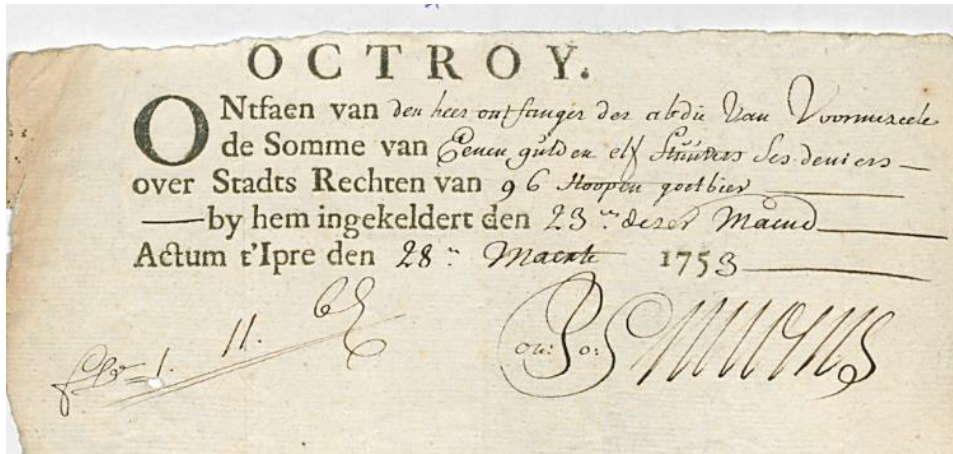 OCTROY.
ONtfaen van den heer ontfanger der abdie Van Voormezeele
de Somme van Eenen gulden elf Stuuvers Ses deniers
over Stadts Rechten van 96 Stoopen goetbier
by hem ingekeldert den 23en deser Maend
Actum t'Ipre den 28en Maerte 1753
1. 11. 6